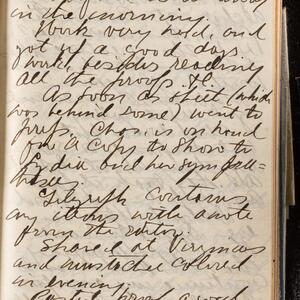 in the morning.
Work very hard, and
got in a good days
work, besides reading
all the proofs &c.
As soon as sheet (which
was behind some) went to
press, Chas. is on hand
for a copy to show to
Lydia and her sympa-
Telegraph contains
my items with a note
from the editor.
Shared at
and mustache colored
in evening.